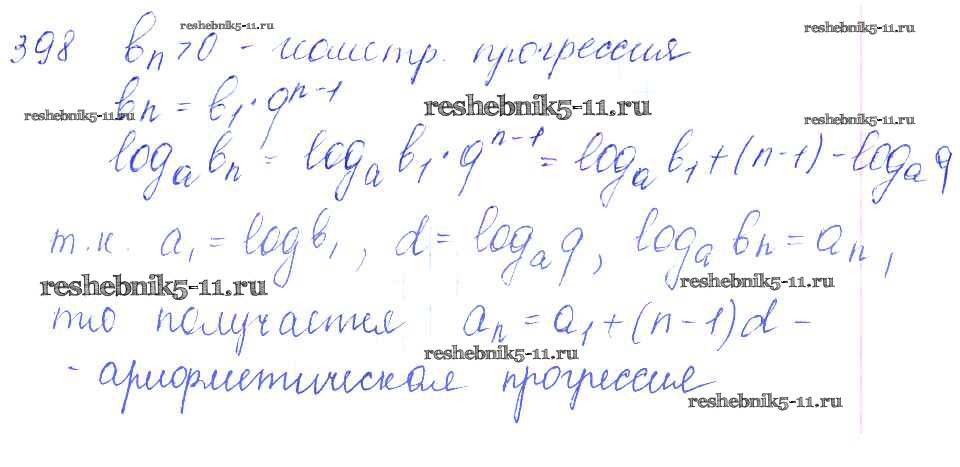 reshebnik5-11.ru reshebnik5-11.ru
398 bn>0 - геометр. прогрессия
bn = b1·q^n-1
reshebnik5-11.ru reshebnik5-11.ru reshebnik5-11.ru
loga bn = loga b1·q^n-1 = loga b1+(n-1)-loga q
т.к. a1=logb1, d=loga q, loga bn=an,
reshebnik5-11.ru reshebnik5-11.ru
то получается an=a1+(n-1)d-
reshebnik5-11.ru
- арифметическая прогрессия
reshebnik5-11.ru